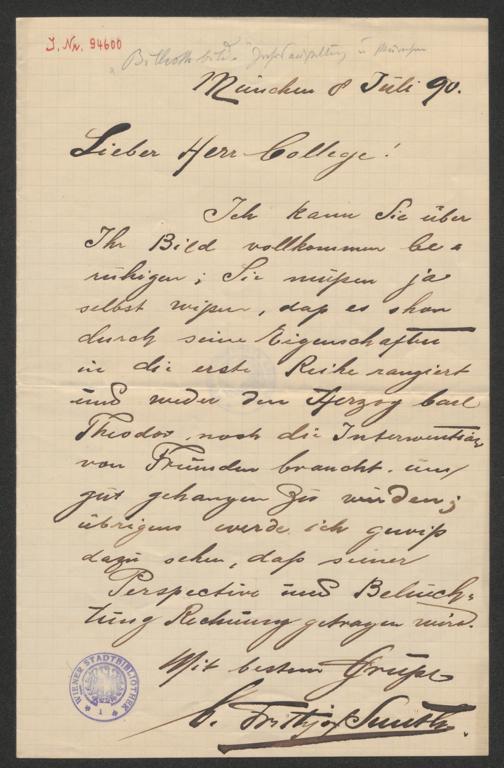 J. Nr. 94600
in München
München 8 Juli 90.
Lieber Herr College!
Ich kann Sie über
Ihr Bild vollkommen be=
ruhigen; Sie müßen ja
selbst wißen, daß es shon
durch seine Eigenschaften
in die erste Reihe rangiert
und weder den Herzog Carl
Theodor, noch die Intervention
von Freunden braucht, um
gut gehangen zu würden;
übrigens werde ich gewiß
dazu sehen, daß seiner
Perspective und Beleuch=
tung Rechnung getragen wird.
Mit bestem Gruße
C. Frithjof Smith.
WIENER STADTBIBLIOTHEK